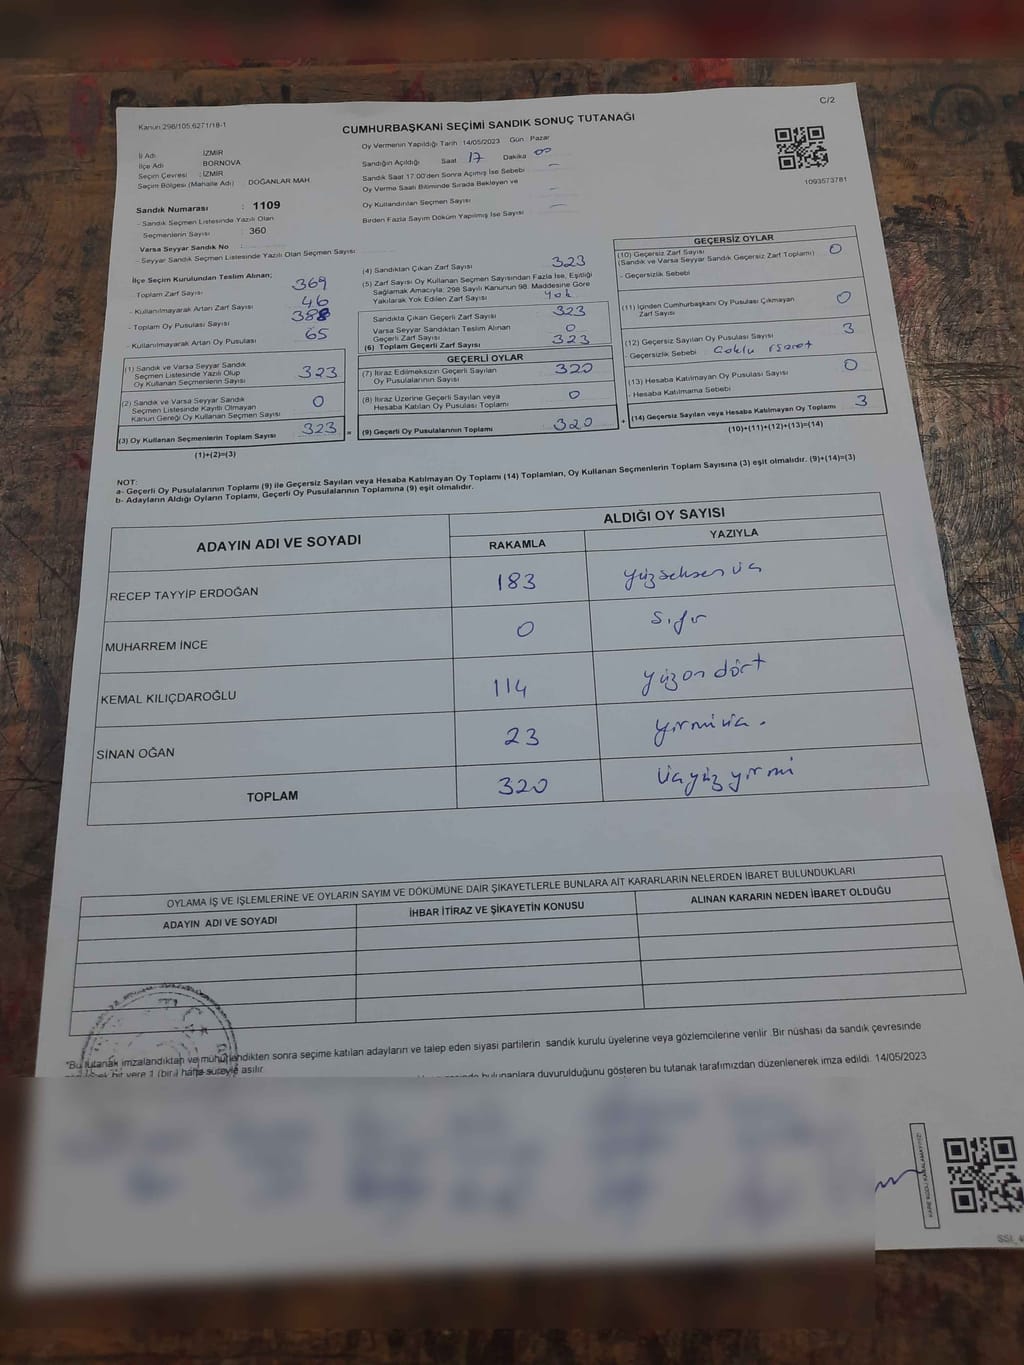 C/2
Kanun:298/105,6271/18-1
CUMHURBAŞKANI SEÇİMİ SANDIK SONUÇ TUTANAĞI
İl Adı : İZMİR
İlçe Adı : BORNOVA
Seçim Çevresi : İZMİR
Seçim Bölgesi (Mahalle Adı) : DOĞANLAR MAH
Sandık Numarası : 1109
- Sandık Seçmen Listesinde Yazılı Olan
Seçmenlerin Sayısı : 360
Varsa Seyyar Sandık No :
- Seyyar Sandık Seçmen Listesinde Yazılı Olan Seçmen Sayısı :
Oy Vermenin Yapıldığı Tarih : 14/05/2023 Gün : Pazar
Sandığın Açıldığı Saat 17 Dakika 00
Sandık Saat 17:00'den Sonra Açılmış İse Sebebi —
Oy Verme Saati Bitiminde Sırada Bekleyen ve
Oy Kullandırılan Seçmen Sayısı —
Birden Fazla Sayım Döküm Yapılmış İse Sayısı —
1093573781
İlçe Seçim Kurulundan Teslim Alınan;
- Toplam Zarf Sayısı 369
- Kullanılmayarak Artan Zarf Sayısı 46
- Toplam Oy Pusulası Sayısı 388
- Kullanılmayarak Artan Oy Pusulası 65
(1) Sandık ve Varsa Seyyar Sandık
Seçmen Listesinde Yazılı Olup
Oy Kullanan Seçmenlerin Sayısı 323
(2) Sandık ve Varsa Seyyar Sandık
Seçmen Listesinde Kayıtlı Olmayan
Kanun Gereği Oy Kullanan Seçmen Sayısı 0
(3) Oy Kullanan Seçmenlerin Toplam Sayısı 323
(1)+(2)=(3)
(4) Sandıktan Çıkan Zarf Sayısı 323
(5) Zarf Sayısı Oy Kullanan Seçmen Sayısından Fazla İse, Eşitliği
Sağlamak Amacıyla; 298 Sayılı Kanunun 98. Maddesine Göre
Yakılarak Yok Edilen Zarf Sayısı Yok
Sandıkta Çıkan Geçerli Zarf Sayısı 323
Varsa Seyyar Sandıktan Teslim Alınan
Geçerli Zarf Sayısı 0
(6) Toplam Geçerli Zarf Sayısı 323
GEÇERLİ OYLAR
(7) İtiraz Edilmeksizin Geçerli Sayılan
Oy Pusulalarının Sayısı 320
(8) İtiraz Üzerine Geçerli Sayılan veya
Hesaba Katılan Oy Pusulası Toplamı 0
= (9) Geçerli Oy Pusulalarının Toplamı 320
GEÇERSİZ OYLAR
(10) Geçersiz Zarf Sayısı
(Sandık ve Varsa Seyyar Sandık Geçersiz Zarf Toplamı) 0
- Geçersizlik Sebebi
(11) İçinden Cumhurbaşkanı Oy Pusulası Çıkmayan
Zarf Sayısı 0
(12) Geçersiz Sayılan Oy Pusulası Sayısı 3
- Geçersizlik Sebebi : Çoklu işaret
(13) Hesaba Katılmayan Oy Pusulası Sayısı 0
- Hesaba Katılmama Sebebi
+ (14) Geçersiz Sayılan veya Hesaba Katılmayan Oy Toplamı 3
(10)+(11)+(12)+(13)=(14)
NOT:
a- Geçerli Oy Pusulalarının Toplamı (9) ile Geçersiz Sayılan veya Hesaba Katılmayan Oy Toplamı (14) Toplamları, Oy Kullanan Seçmenlerin Toplam Sayısına (3) eşit olmalıdır. (9)+(14)=(3)
b- Adayların Aldığı Oyların Toplamı, Geçerli Oy Pusulalarının Toplamına (9) eşit olmalıdır.
ADAYIN ADI VE SOYADI
ALDIĞI OY SAYISI
RAKAMLA YAZIYLA
RECEP TAYYİP ERDOĞAN 183 yüzseksen üç
MUHARREM İNCE 0 Sıfır
KEMAL KILIÇDAROĞLU 114 yüzon dört
SİNAN OĞAN 23 yirmiüç.
TOPLAM 320 üçyüz yirmi
OYLAMA İŞ VE İŞLEMLERİNE VE OYLARIN SAYIM VE DÖKÜMÜNE DAİR ŞİKAYETLERLE BUNLARA AİT KARARLARIN NELERDEN İBARET BULUNDUKLARI
ADAYIN ADI VE SOYADI İHBAR İTİRAZ VE ŞİKAYETİN KONUSU ALINAN KARARIN NEDEN İBARET OLDUĞU
*Bu tutanak imzalandıktan ve mühürlendikten sonra seçime katılan adayların ve talep eden siyasi partilerin sandık kurulu üyelerine veya gözlemcilerine verilir. Bir nüshası da sandık çevresinde
bir yere 1 (bir) hafta süreyle asılır.
bulunanlara duyurulduğunu gösteren bu tutanak tarafımızdan düzenlenerek imza edildi. 14/05/2023
KARE KODU KARALAMAYINIZ!